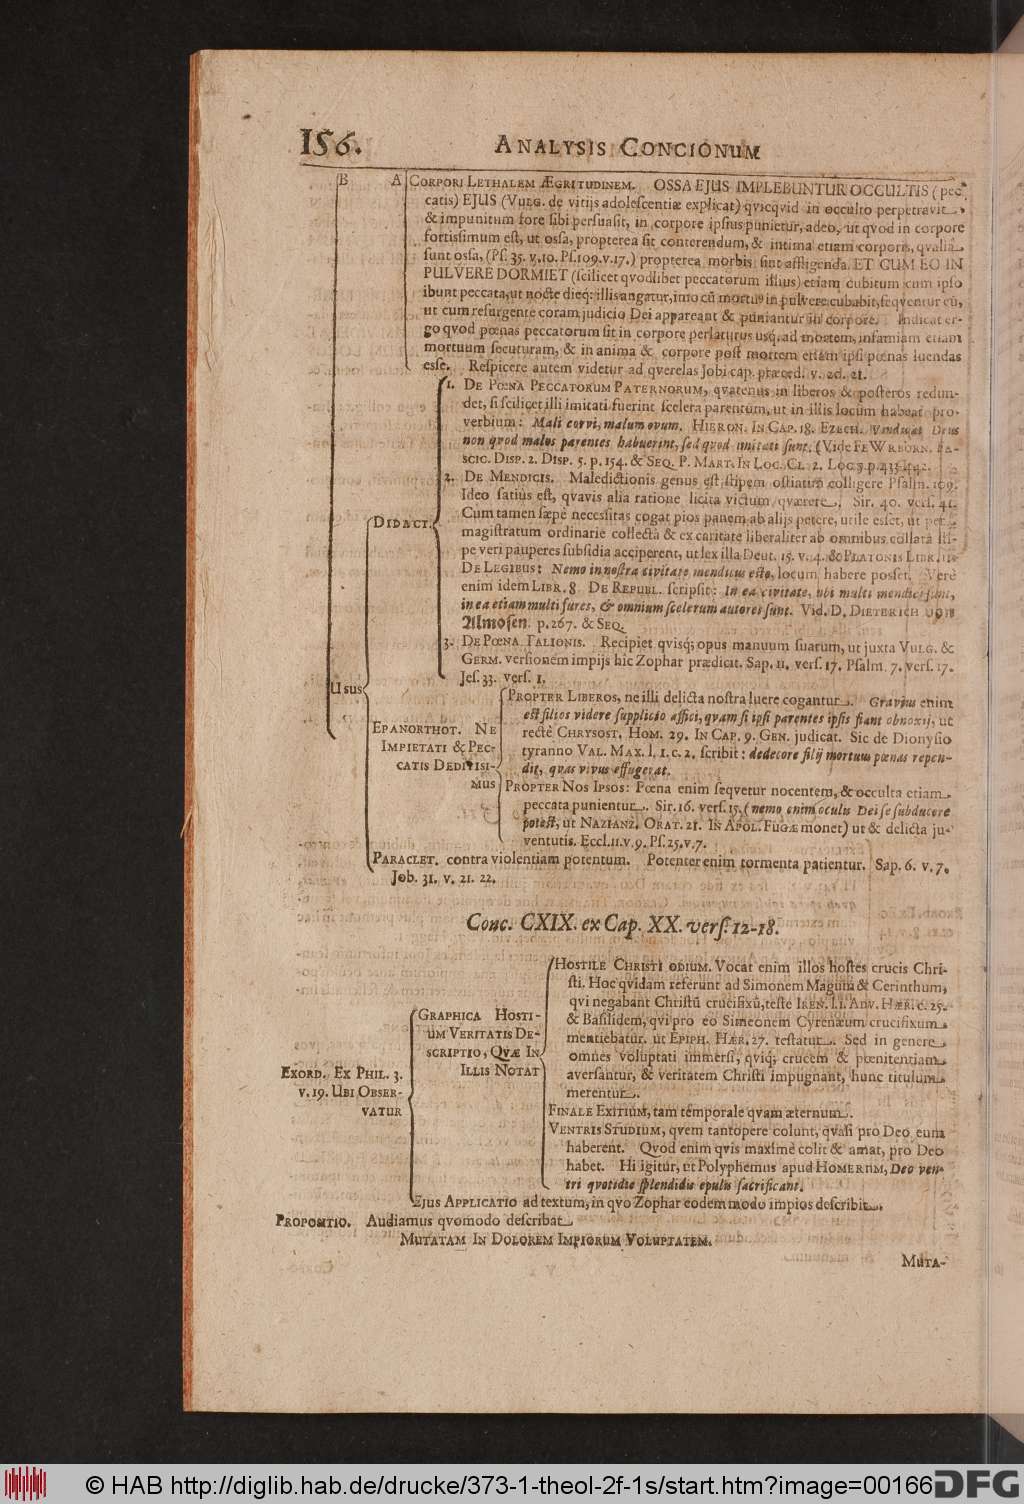 156.
ANALYSIS CONCIONUM
B
A
CORPORI LETHALEM ÆGRITUDINEM. OSSA EJUS IMPLEBUNTUR OCCULTIS (pec
catis) EJUS (VULG. de vitijs adolescentiæ explicat) qvicqvid in occulto perpetravit,
& impunitum fore sibi persuasit, in corpore ipsius punietur, adeo, ut qvod in corpore
fortissimum est, ut ossa, propterea sit conterendum, & intima etiam corporis, qvalia
sunt ossa, (Ps. 35. v. 10. Ps. 109. v. 17.) propterea morbis sint affligenda. ET CUM EO IN
PULVERE DORMIET (scilicet qvodlibet peccatorum illius) etiam cubitum cum ipso
ibunt peccata, ut nocte dieq; illis angatur, imo cũ mortuus in pulvere cubabit, seqventur eũ,
ut cum resurgente coram judicio Dei appareant & puniantur in corpore. Indicat er-
go qvod pœnas peccatorum sit in corpore perlaturus usq; ad mortem, infamiam etiam
mortuum secuturam, & in anima & corpore post mortem etiam ipsi pœnas luendas
esse. Respicere autem videtur ad qverelas Jobi cap. præced. v. 20. 21.
1. DE PŒNA PECCATORUM PATERNORUM, qvatenus in liberos & posteros redun-
det, si scilicet illi imitati fuerint scelera parentum, ut in illis locum habeat pro-
verbium: Mali corvi, malum ovum. HIERON. IN CAP. 18. EZECH. Vindicat Deus
non quod malos parentes habuerint, sed quod imitati sunt. (Vide FEWRBORN. FA-
SCIC. DISP. 2. DISP. 5. p. 154. & SEQ. P. MART. IN LOC. CL. 2. LOC. 3. p. 435.442.
2. DE MENDICIS. Maledictionis genus est stipem ostiatim colligere Psalm. 109.
Ideo satius est, qvavis alia ratione licita victum qværere. Sir. 40. vers. 41.
Cum tamen sæpè necessitas cogat pios panem ab alijs petere, utile esset, ut per
magistratum ordinarie collectâ & ex caritate liberaliter ab omnibus collatâ sti-
pe veri pauperes subsidia acciperent, ut lex illa Deut. 15. v. 4. & PLATONIS LIB. 11.
DE LEGIBUS: Nemo in nostra civitate mendicus esto, locum habere posset. Verè
enim idem LIBR. 8 DE REPUBL. scripsit: In ea civitate, ubi multi mendici sunt,
in ea etiam multi fures, & omnium scelerum autores sunt. Vid. D. DIETERICH von
Almosen. p. 267. & SEQ.
3. DE PŒNA TALIONIS. Recipiet qvisq; opus manuum suarum, ut juxta VULG. &
GERM. versionem impijs hic Zophar prædicit. Sap. 11. vers. 17. Psalm. 7. vers. 17.
Jes. 33. vers. 1.
DIDACT.
Usus
EPANORTHOT. NE
IMPIETATI & PEC-
CATIS DEDITISI-
MUS
PROPTER LIBEROS, ne illi delicta nostra luere cogantur. Gravius enim
est filios videre supplicio affici, quam si ipsi parentes ipsis fiant obnoxij, ut
rectè CHRYSOST. HOM. 29. IN CAP. 9. GEN. judicat. Sic de Dionysio
tyranno VAL. MAX. l. 1. c. 2. scribit: dedecore filij mortuus pœnas repen-
dit, quas vivus effugerat.
PROPTER NOS IPSOS: Pœna enim seqvetur nocentem, & occulta etiam
peccata punientur. Sir. 16. vers. 15. (nemo enim oculis Dei se subducere
potest, ut NAZIANZ. ORAT. 21. IN APOL. FUGÆ monet) ut & delicta ju-
ventutis. Eccl. 11. v. 9. Ps. 25. v. 7.
PARACLET. contra violentiam potentum. Potenter enim tormenta patientur. Sap. 6. v. 7.
Job. 31. v. 21. 22.
Conc. CXIX. ex Cap. XX. vers. 12-18.
EXORD. EX PHIL. 3.
v. 19. UBI OBSER-
VATUR
GRAPHICA HOSTI-
UM VERITATIS DE-
SCRIPTIO, QVÆ IN
ILLIS NOTAT
HOSTILE CHRISTI ODIUM. Vocat enim illos hostes crucis Chri-
sti. Hoc qvidam referunt ad Simonem Magum & Cerinthum,
qvi negabant Christũ crucifixũ, teste IREN. l. 1. ADV. HÆR. c. 25.
& Basilidem, qvi pro eo Simeonem Cyrenæum crucifixum
mentiebatur. ut EPIPH. HÆR. 27. testatur. Sed in genere
omnes voluptati immersi, qviq; crucem & pœnitentiam
aversantur, & veritatem Christi impugnant, hunc titulum
merentur.
FINALE EXITIUM, tam temporale qvam æternum.
VENTRIS STUDIUM, qvem tantopere colunt, qvasi pro Deo eum
haberent. Qvod enim qvis maximè colit & amat, pro Deo
habet. Hi igitur, ut Polyphemus apud HOMERUM, Deo ven-
tri quotidie splendidis epulis sacrificant.
Ejus APPLICATIO ad textum, in qvo Zophar eodem modo impios describit.
PROPOSITIO. Audiamus qvomodo describat
MUTATAM IN DOLOREM IMPIORUM VOLUPTATEM.
MUTA-
© HAB http://diglib.hab.de/drucke/373-1-theol-2f-1s/start.htm?image=00166
DFG